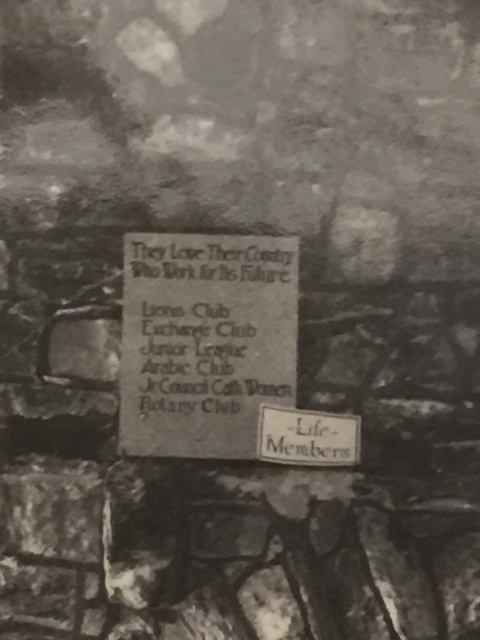 They Love Their Country
Who Work for Its Future
Lions Club
Exchange Club
Junior League
Arabic Club
Jr Council Cath Women
Rotary Club
-Life-
Members